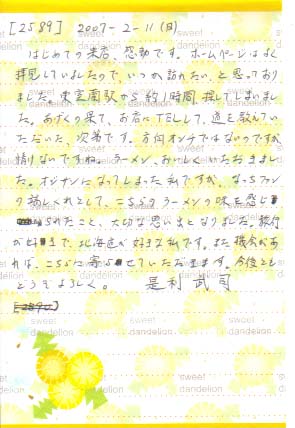 [2589] 2007-2-11(日)
はじめての来店、感動です。ホームページはよく
拝見していましたので、いつか訪れたい、と思っており
ました。東室蘭駅から約1時間、探してしまいまし
た。あげくの果て、お店にTELして、道を教えてい
ただいた次第です。方向オンチではないのですが、
情けないですね。ラーメン、おいしくいただきまし
た。オジサンになってしまった私ですが、
として、こちらのラーメンの味を感じ
られたこと、大切な思い出となりました。旅行
が好きで、北海道が好きな私です。また機会があ
れば、こちらに寄らせていただきます。今後とも
どうぞよろしく。 是利武司
sweet dandelion
sweet dandelion
sweet dandelion
sweet dandelion
sweet dandelion
sweet dandelion